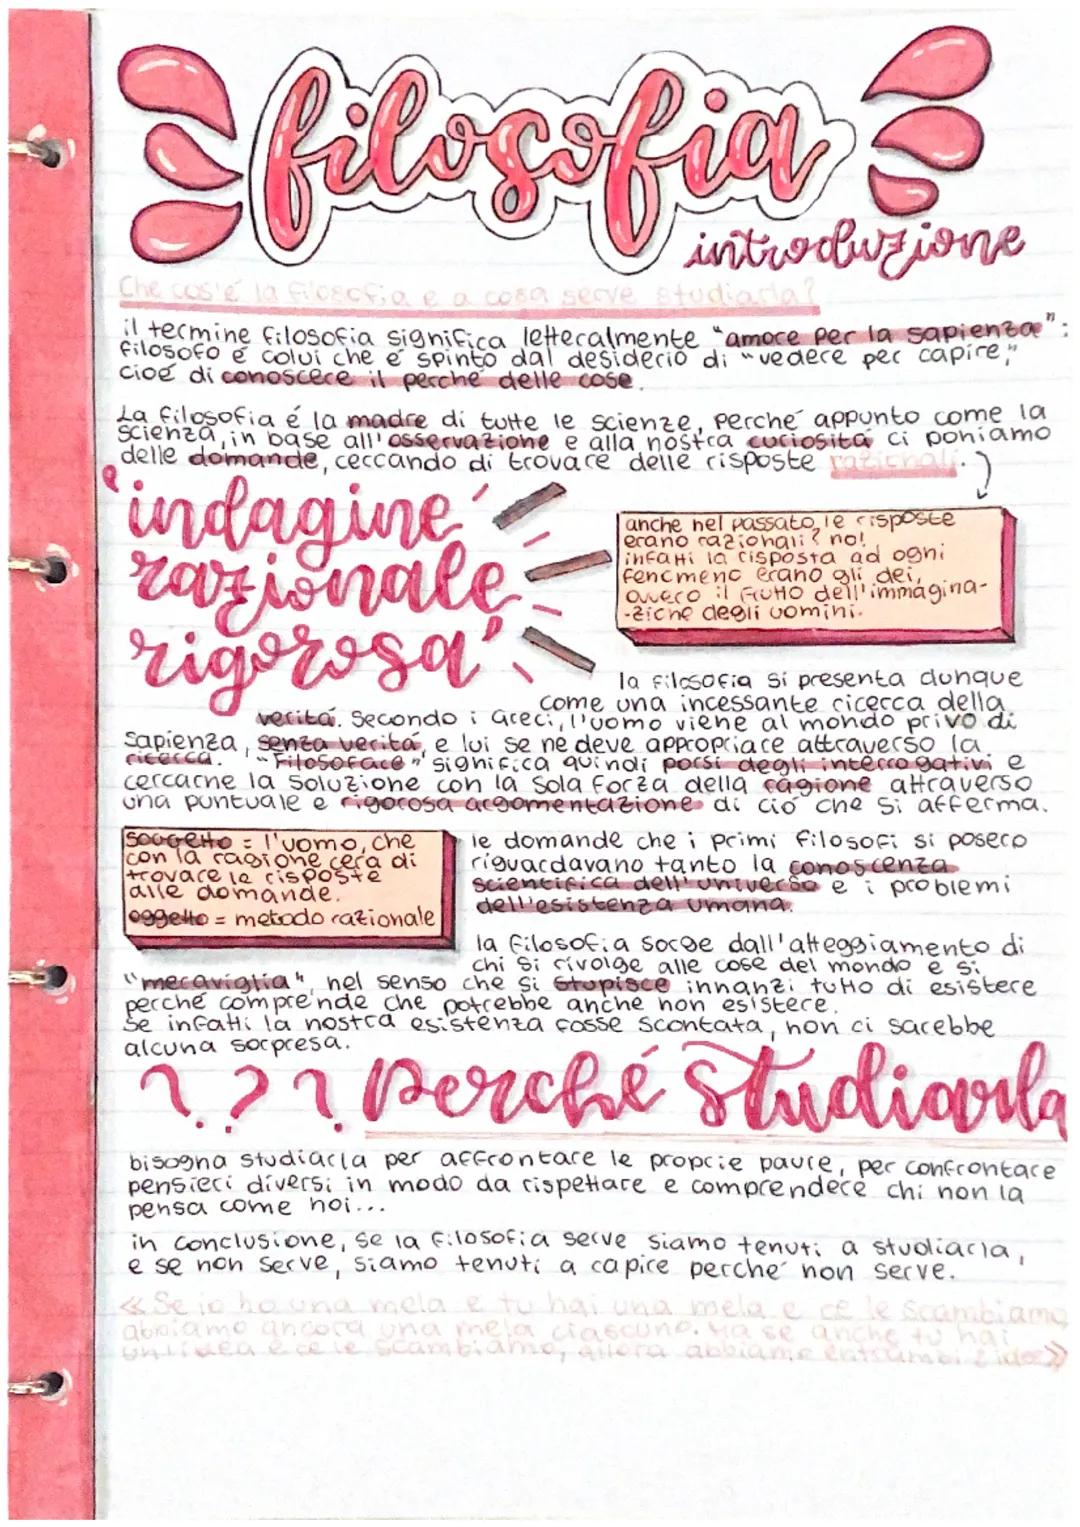 filosofia
introduzione
Che cos'é la filosofia e a cosa serve studiarla?
il termine filosofia significa letteralmente "amore per la sapienza":
filosofo é colui che é spinto dal desiderio di "vedere per capire,"
cioé di conoscere il perché delle cose.
La filosofia é la madre di tutte le scienze, perché appunto come la
scienza, in base all'osservazione e alla nostra curiositá ci poniamo
delle domande, cercando di trovare delle risposte razionali.
"indagine
razionale
rigorosa"
anche nel passato, le risposte
erano razionali? no!
infatti la risposta ad ogni
fenomeno erano gli dei,
ovvero il frutto dell'immagina-
-zione degli uomini.
la filosofia si presenta dunque
come una incessante ricerca della
veritá. Secondo i Greci, l'uomo viene al mondo privo di
sapienza, senza veritá, e lui se ne deve appropriare attraverso la
ricerca. "Filosofare" significa quindi porsi degli interrogativi e
cercarne la soluzione con la sola forza della ragione attraverso
una puntuale e rigorosa argomentazione di ció che si afferma.
soggetto = l'uomo, che
con la ragione cera di
trovare le risposte
alle domande.
oggetto = metodo razionale
le domande che i primi filosofi si posero
riguardavano tanto la conoscenza
scientifica dell'universo e i problemi
dell'esistenza umana.
la filosofia sorge dall'atteggiamento di
chi si rivolge alle cose del mondo e si
"meraviglia", nel senso che si stupisce innanzi tutto di esistere
perché comprende che potrebbe anche non esistere.
Se infatti la nostra esistenza fosse scontata, non ci sarebbe
alcuna sorpresa.
??? perché studiarla
bisogna studiarla per affrontare le proprie paure, per confrontare
pensieri diversi in modo da rispettare e comprendere chi non la
pensa come noi...
in conclusione, se la filosofia serve siamo tenuti a studiarla,
e se non serve, siamo tenuti a capire perché non serve.
«Se io ho una mela e tu hai una mela e ce le scambiamo
abbiamo ancora una mela ciascuno. Ma se anche tu hai
un'idea e ce le scambiamo, allora abbiamo entrambi 2 idee»